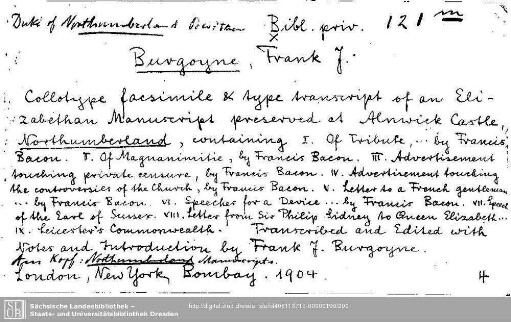 Duke of Northumberland Bibl. priv. 121 m
Burgoyne, Frank J.
Collotype facsimile & type transcript of an Eli-
zabethan Manuscript preserved at Alnwick Castle,
Northumberland, containing I. Of Tribute, ... by Francis
Bacon. II. Of Magnanimitie, by Francis Bacon. III. Advertisement
touching private censure, by Francis Bacon. IV. Advertisement touching
the controversies of the Church, by Francis Bacon. V. Letter to a French gentleman
... by Francis Bacon. VI. Speeches for a Device ... by Francis Bacon. VII. Speech
of the Earl of Sussex. VIII. Letter from Sir Philip Sidney to Queen Elizabeth...
IX. Leicester's Commonwealth. Transcribed and Edited with
Notes and Introduction by Frank J. Burgoyne.
Kopf: Northumberland Manuscripts.
London, New York, Bombay, 1904. 4
Sächsische Landesbibliothek –
Staats- und Universitätsbibliothek Dresden